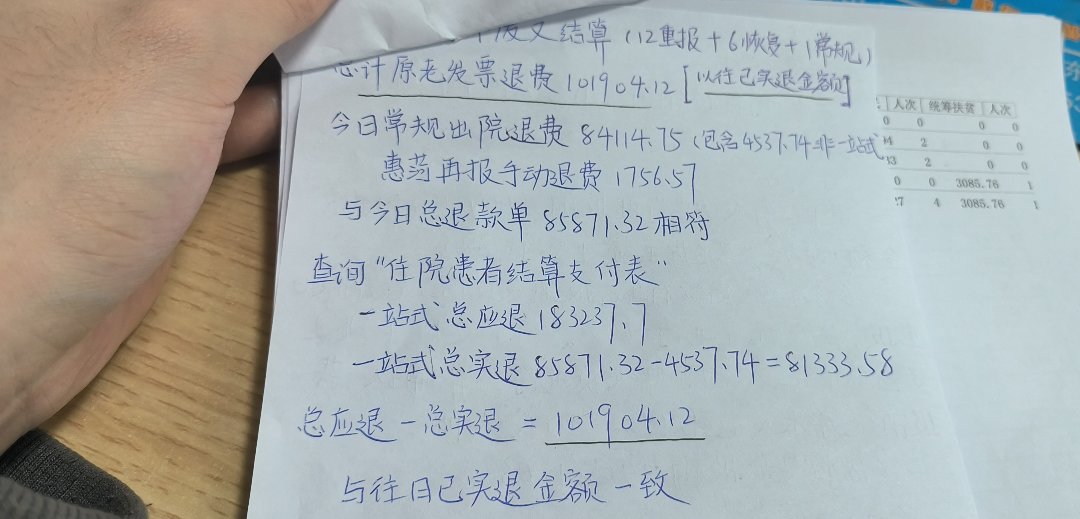 反又结算（12重报+6恢复+1常规）
总计原老发票退费101904.12［以往已实退金额］
今日常规出院退费 84114.75（包含4537.74非一站式
惠荡再报手动退费1756.57
与今日总退款单85871.32相符
查询“住院患者结算支付表”
一站式总应退183237.7
一站式总实退85871.32-4537.74=81333.58
总应退-总实退=101904.12
与往日已实退金额一致
人次 统筹扶贫 人次
0 0 0 0
2 0 0
2 0 0
0 0 3085.76 1
4 3085.76 1